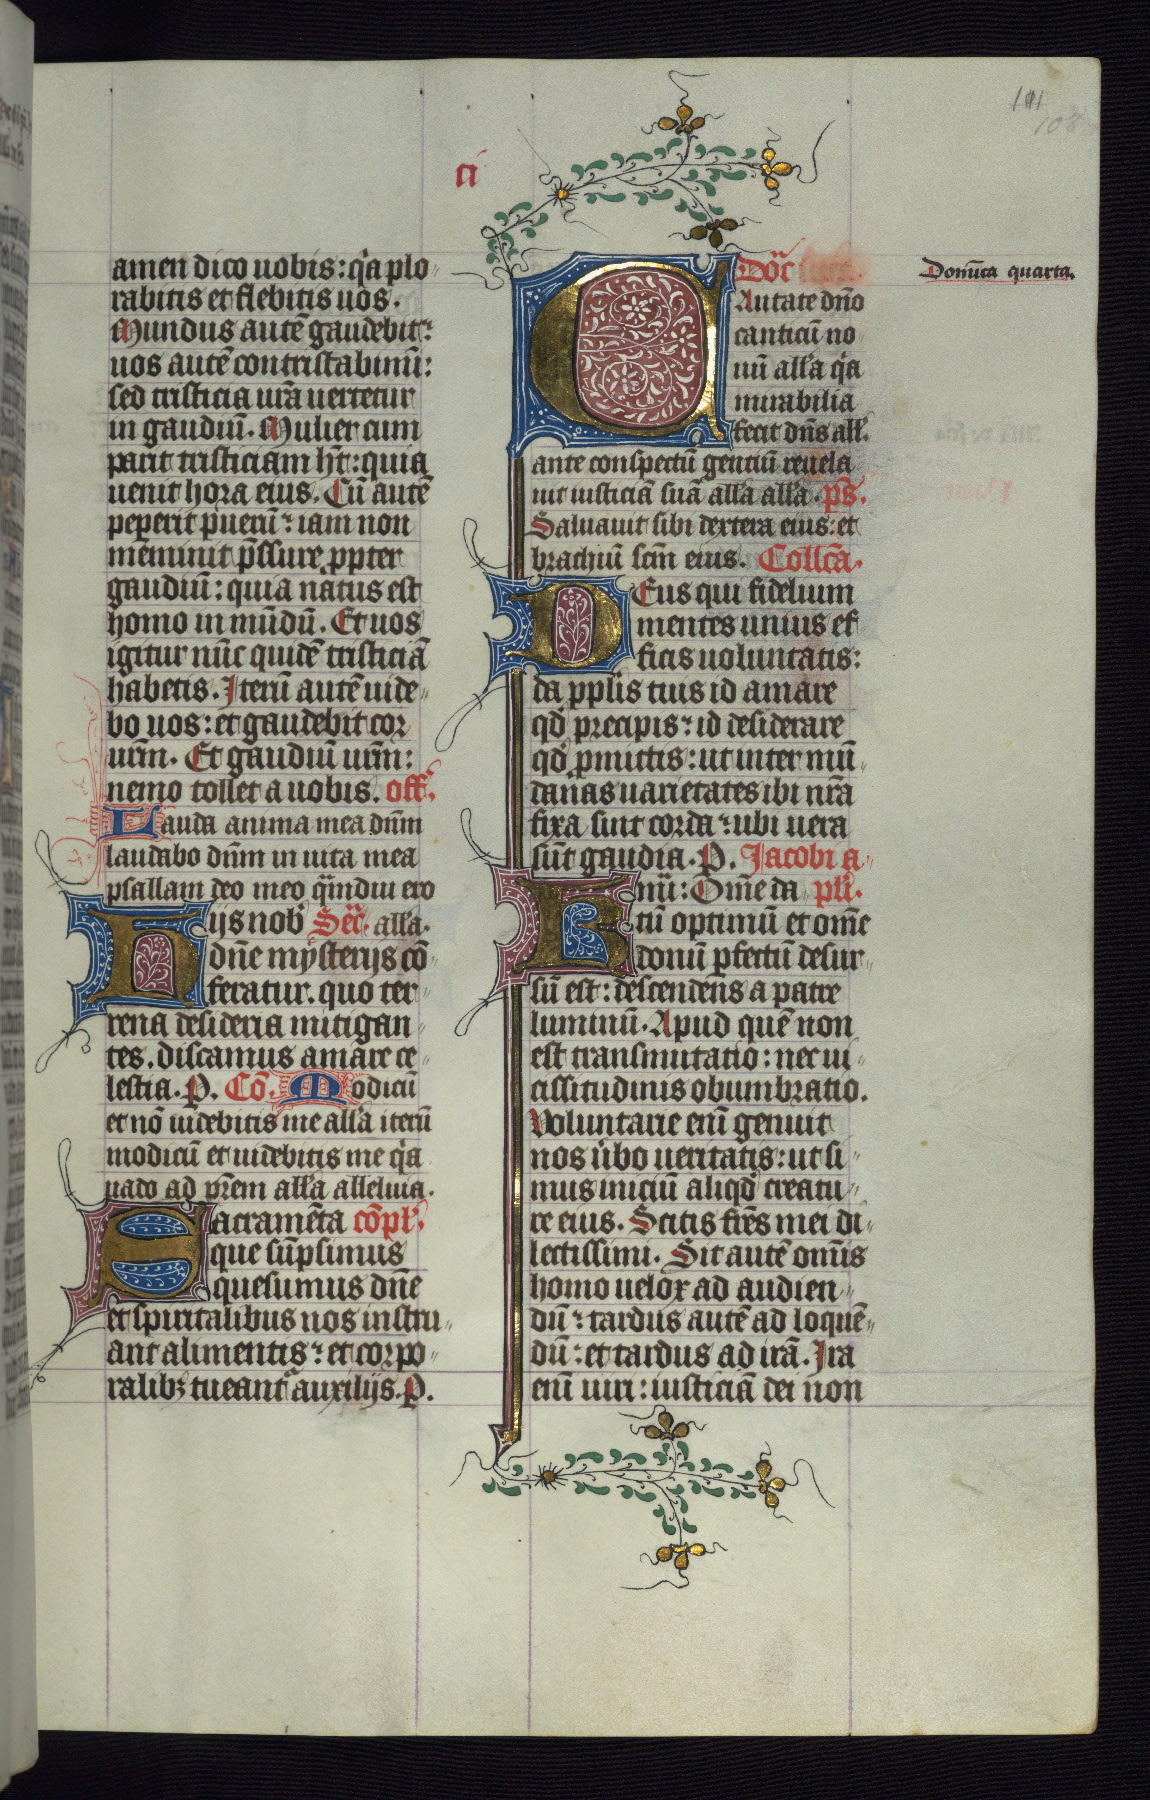 111
108
ci
amen dico uobis: q̇a plo
rabitis et flebitis uos.
Mundus autē gaudebit:
uos autē contristabimī:
sed tristicia ur̄a uertetur
in gaudiū. Mulier cum
parit tristiciam ht̄: quia
uenit hora eius. Cū autē
peperit puerū: iam non
meminit p̄ssure ꝓpter
gaudiū: quia natus est
homo in mūdū. Et uos
igitur nūc quidē tristiciā
habetis. Iterū autē uide
bo uos: et gaudebit cor
ur̄m. Et gaudiū ur̄m:
nemo tollet a uobis. off̄.
Lauda anima mea dn̄m
laudabo dn̄m in uita mea
psallam deo meo q̄mdiu ero
Hijs nob̄ Sec̄. all̄a.
dn̄e mysterijs cō
feratur. quo ter
rena desideria mitigan
tes. discamus amare ce
lestia. P. Cō. Modicū
et nō uidebitis me all̄a iterū
modicū et uidebitis me q̇a
uado ad pr̄em all̄a alleluia.
Sacramēta cōpl̄.
que sūpsimus
quesumus dn̄e
et spiritalibus nos instru
ant alimentis: et corpo
ralibꝫ tueant᷑ auxilijs. P.
Dōc
Domīca quarta.
Cantate dn̄o
canticū no
uū all̄a q̇a
mirabilia
fecit dn̄s all̄.
ante conspectū gentiū reuela
uit iusticiā suā all̄a all̄a. ps̄.
Saluauit sibi dextera eius: et
brachiū sc̄m eius. Collc̄a.
Deus qui fidelium
mentes unius ef
ficis uoluntatis:
da ppl̄is tuis id amare
qd̄ precipis: id desiderare
qd̄ ꝓmittis: ut inter mū
danas uarietates ibi nr̄a
fixa sint corda: ubi uera
sūt gaudia. P. Jacobi a
Kmi: Om̄e da pl̄i.
tū optimū et om̄e
donū ꝑfectū desur
sū est: descendens a patre
luminū. Apud quē non
est transmutatio: nec ui
cissitudinis obumbratio.
Voluntarie enī genuit
nos u̇bo ueritatis: ut si
mus iniciū aliqd̄ creatu
re eius. Scitis fr̄es mei di
lectissimi. Sit autē om̄is
homo uelox ad audien
dū: tardus autē ad loquē
dū: et tardus ad irā. Ira
enī uiri: iusticiā dei non